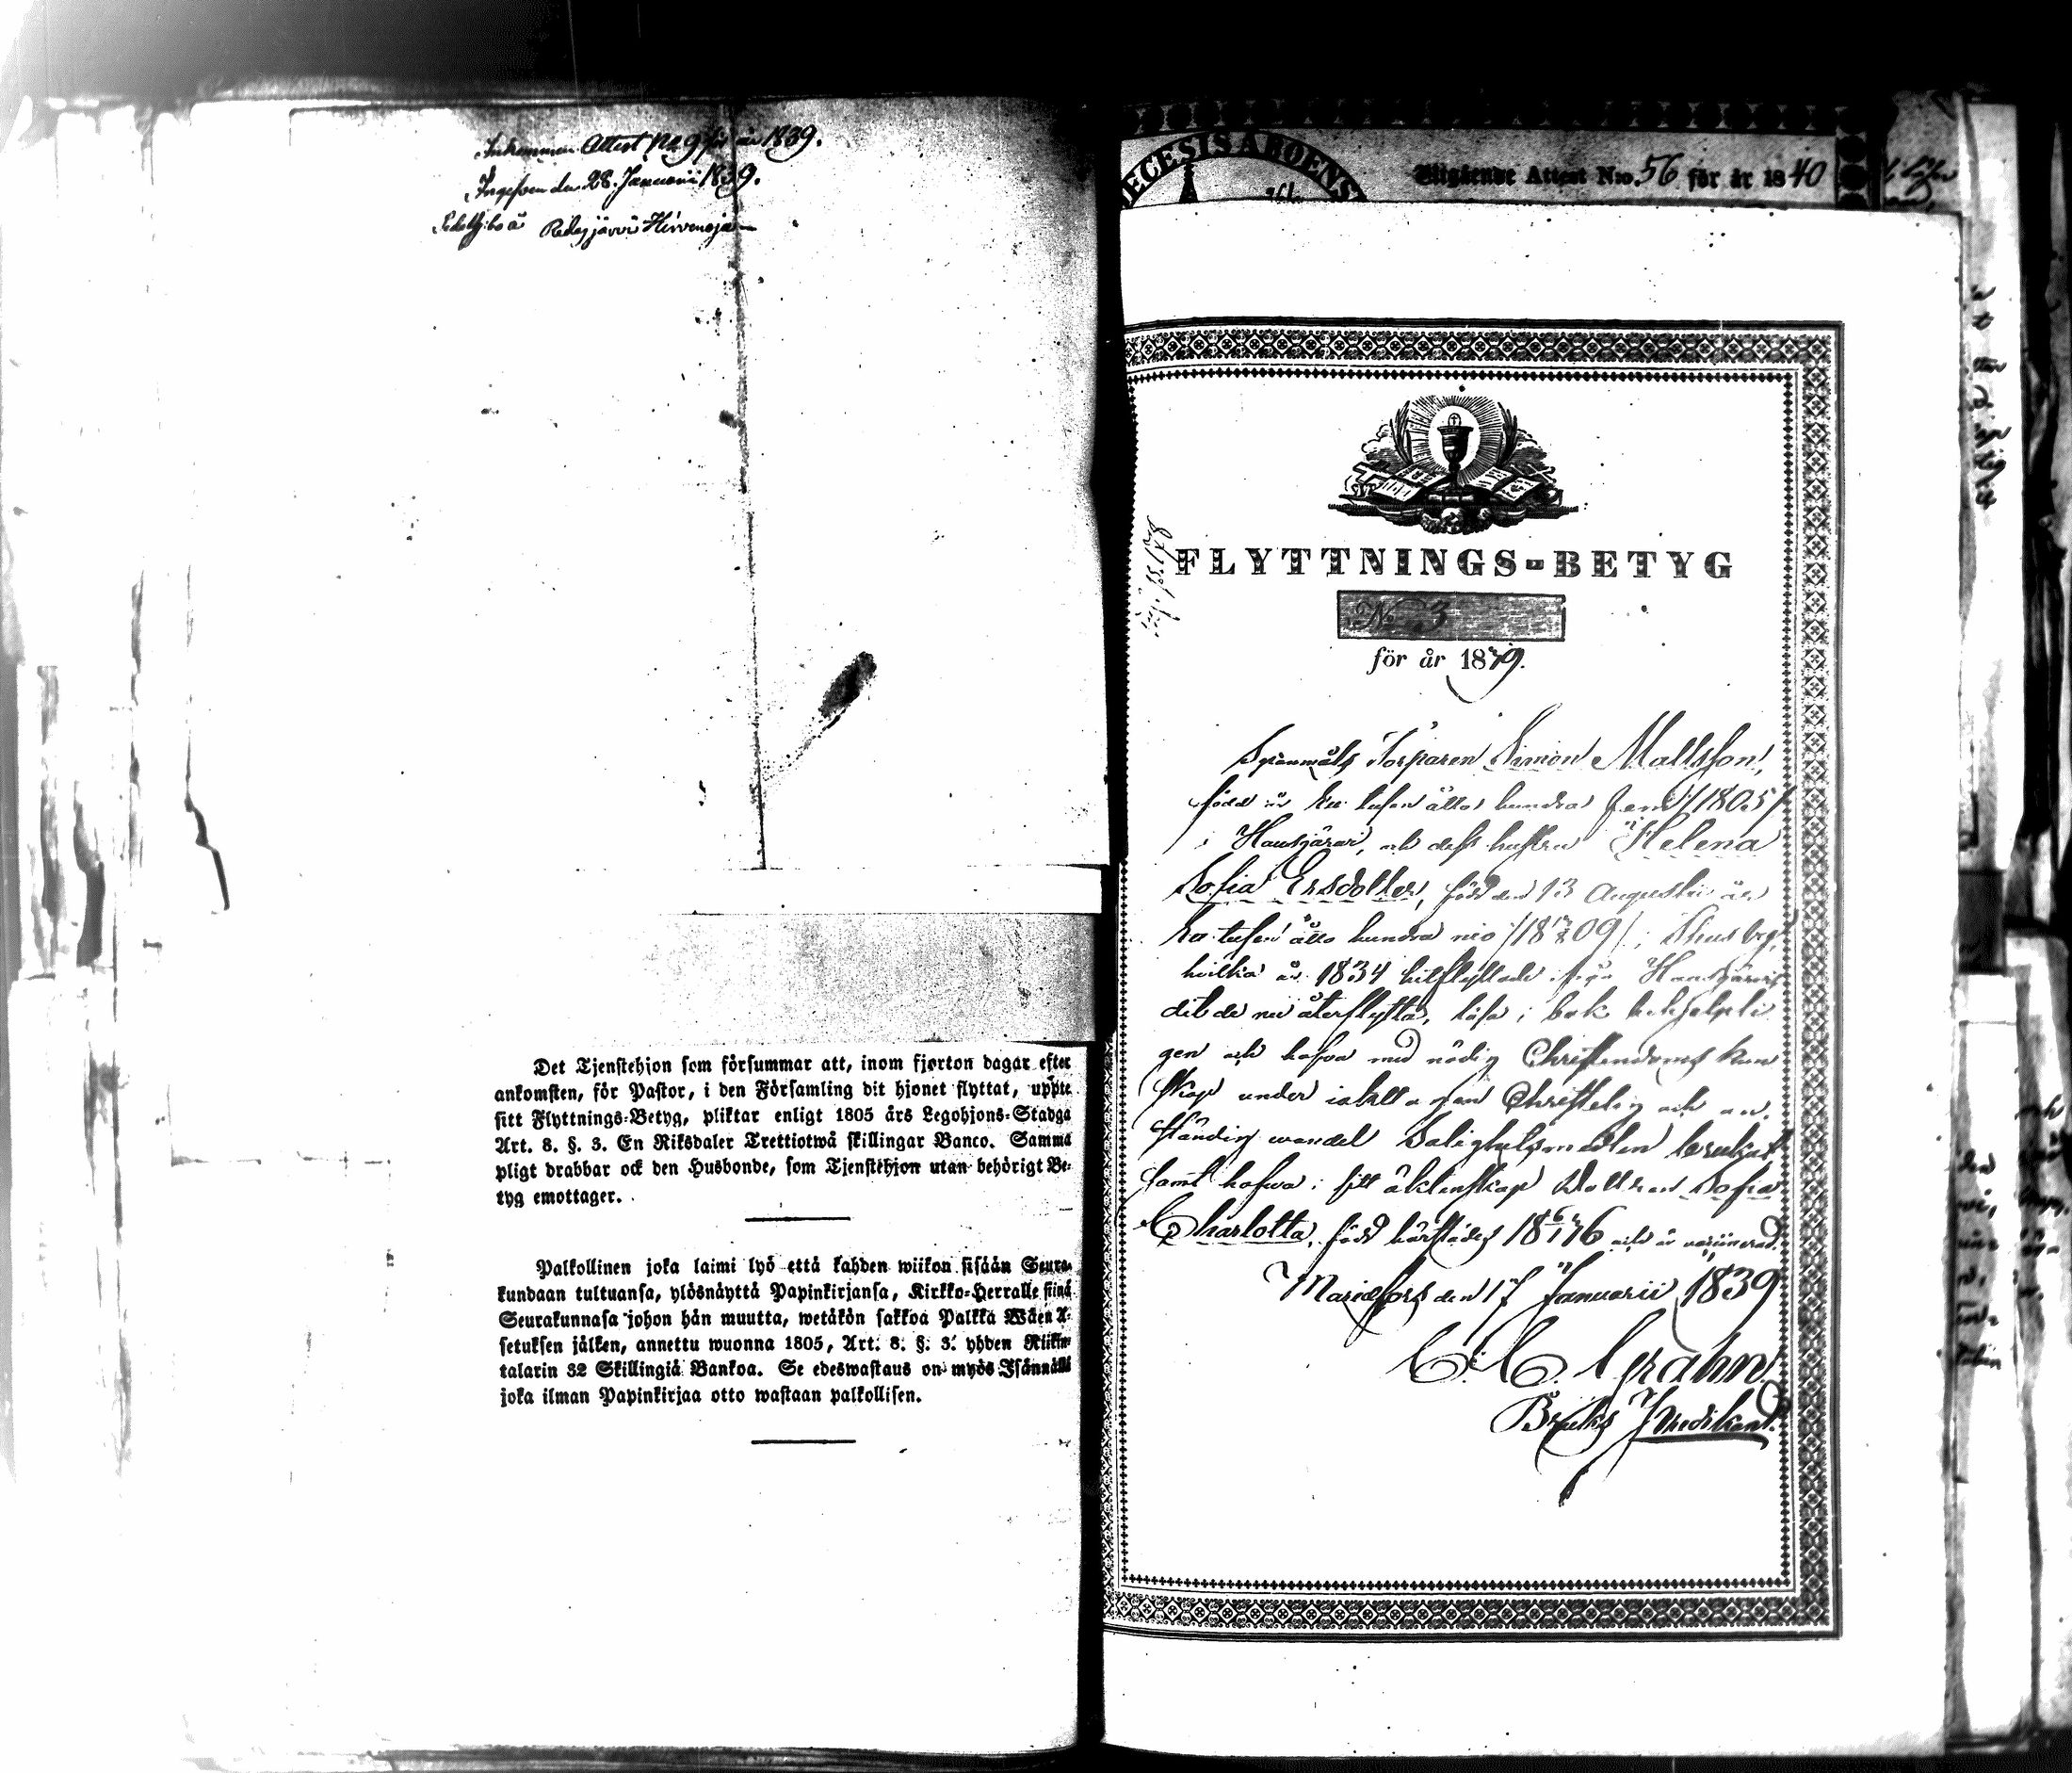 Inkommen Attest No 9 för år 1839.
Ingifven den 28. Januarii 1839.
Hirvenoja
Det Tjenstehjon som försummar att, inom fjorton dagar efter
ankomsten, för Pastor, i den Församling dit hjonet flyttat, uppte
sitt Flyttnings-Betyg, pliktar enligt 1805 års Legohjons-Stadga
Art. 8. §. 3. En Riksdaler Trettiotwå skillingar Banco. Samma
pligt drabbar ock den Husbonde, som Tjenstehjon utan behörigt Be-
tyg emottager.
Palkollinen joka laimi lyö että kahden wiikon sisään Seura-
kundaan tultuansa, ylösnäyttä Papinkirjansa, Kirkko-Herralle siinä
Seurakunnasa johon hän muutta, wetäkön sakkoa Palkka Wäen A-
setuksen jälken, annettu wuonna 1805, Art. 8. §. 3. yhden Riikin-
talarin 32 Skillingiä Bankoa. Se edeswastaus on myös Isännällä
joka ilman Papinkirjaa otto wastaan palkollisen.
DIECESIS ABOENS
Utgående Attest N:o. 56 för år 1840
FLYTTNINGS-BETYG
No 3
för år 1839.
Torparen Simon Mattsson,
född år Ett tusen åtta hundra fem /1805/
i Hausjärvi, och dess hustru Helena
Sofia Ersdotter, född den 13 Augusti år
Ett tusen åtta hundra nio /18 13/8 09/ i
hvilka år 1834 hitflyttade från Hausjärvi
dit de nu återflytta, läsa i bok behjelpli
gen och hafva med nödig Christendoms kun
skap under iakttagan Christelig och an-
ständig wandel Salighetsmedlen brukat
samt hafva i sitt äktenskap Dottren Sofia
Charlotta, född härstädes och är vaccinerad.
Mariefors den 17 Januarii 1839
C. C. Grahn
Bruks Predikant.